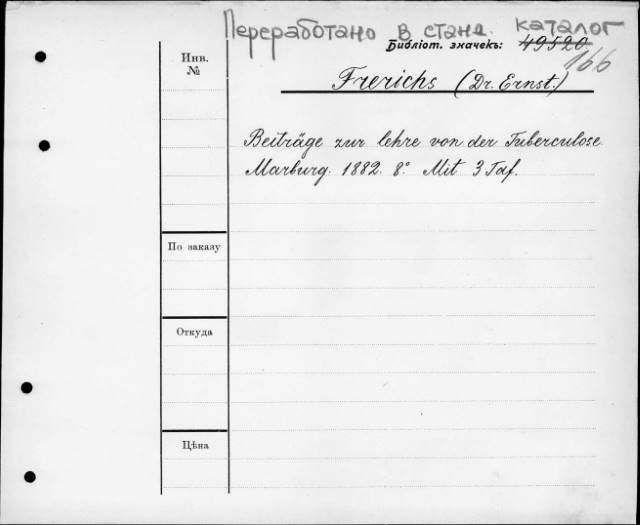 Переработано в станд. каталог
Библіот. значекъ: 49520
166
Инв. №
Frerichs (Dr. Ernst.)
Beiträge zur lehre von der Tuberculose
Marburg. 1882. 8° Mit 3 Taf.
По заказу
Откуда
Цѣна